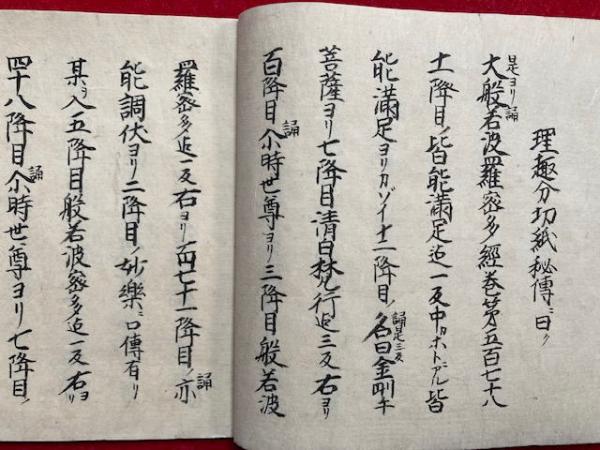 理趣分切紙秘傳ニ曰ク
是ヨリ誦
大般若波羅密多經巻第五百七十八
十一降目ノ皆能滿足迄一反中カホトデル皆
能滿足ヨリカゾイ十二降目ノ名曰金剛手
誦是三反
菩薩ヨリ七降目清白梵行迄三反右ヨリ
百降目尒時世尊ヨリ三降目般若波
誦
羅密多迄一反右ヨリ百七十一降目ノ亦
誦
能調伏ヨリ二降目ノ妙樂ニ口傳有リ
某ヲ入五降目般若波密多迄一反右ヨリ
四十八降目尒時世尊ヨリ七降目ノ
誦